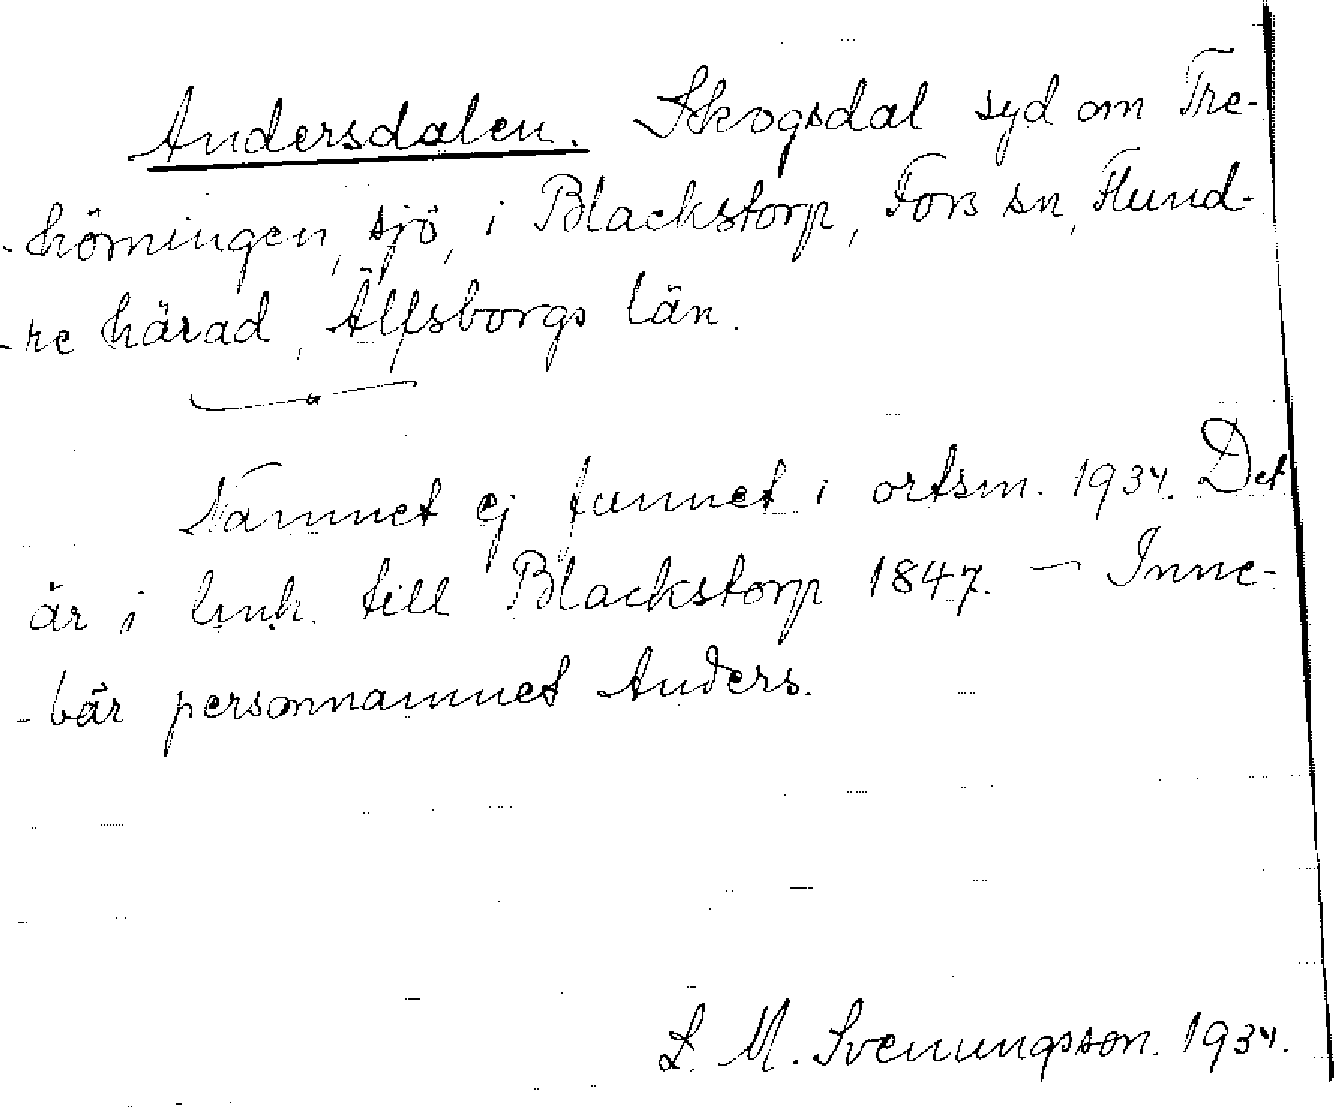 Andersdalen. Skogsdal syd om Tre-
-hörningen, sjö, i Blackstorp, Fors sn, Flund-
-re härad, Älfsborgs län.
Namnet ej funnet i ortsm. 1934. Det
är i luh. till Blackstorp 1847. – Inne-
-bär personnamnet Anders.
L. M. Svenungsson. 1934.